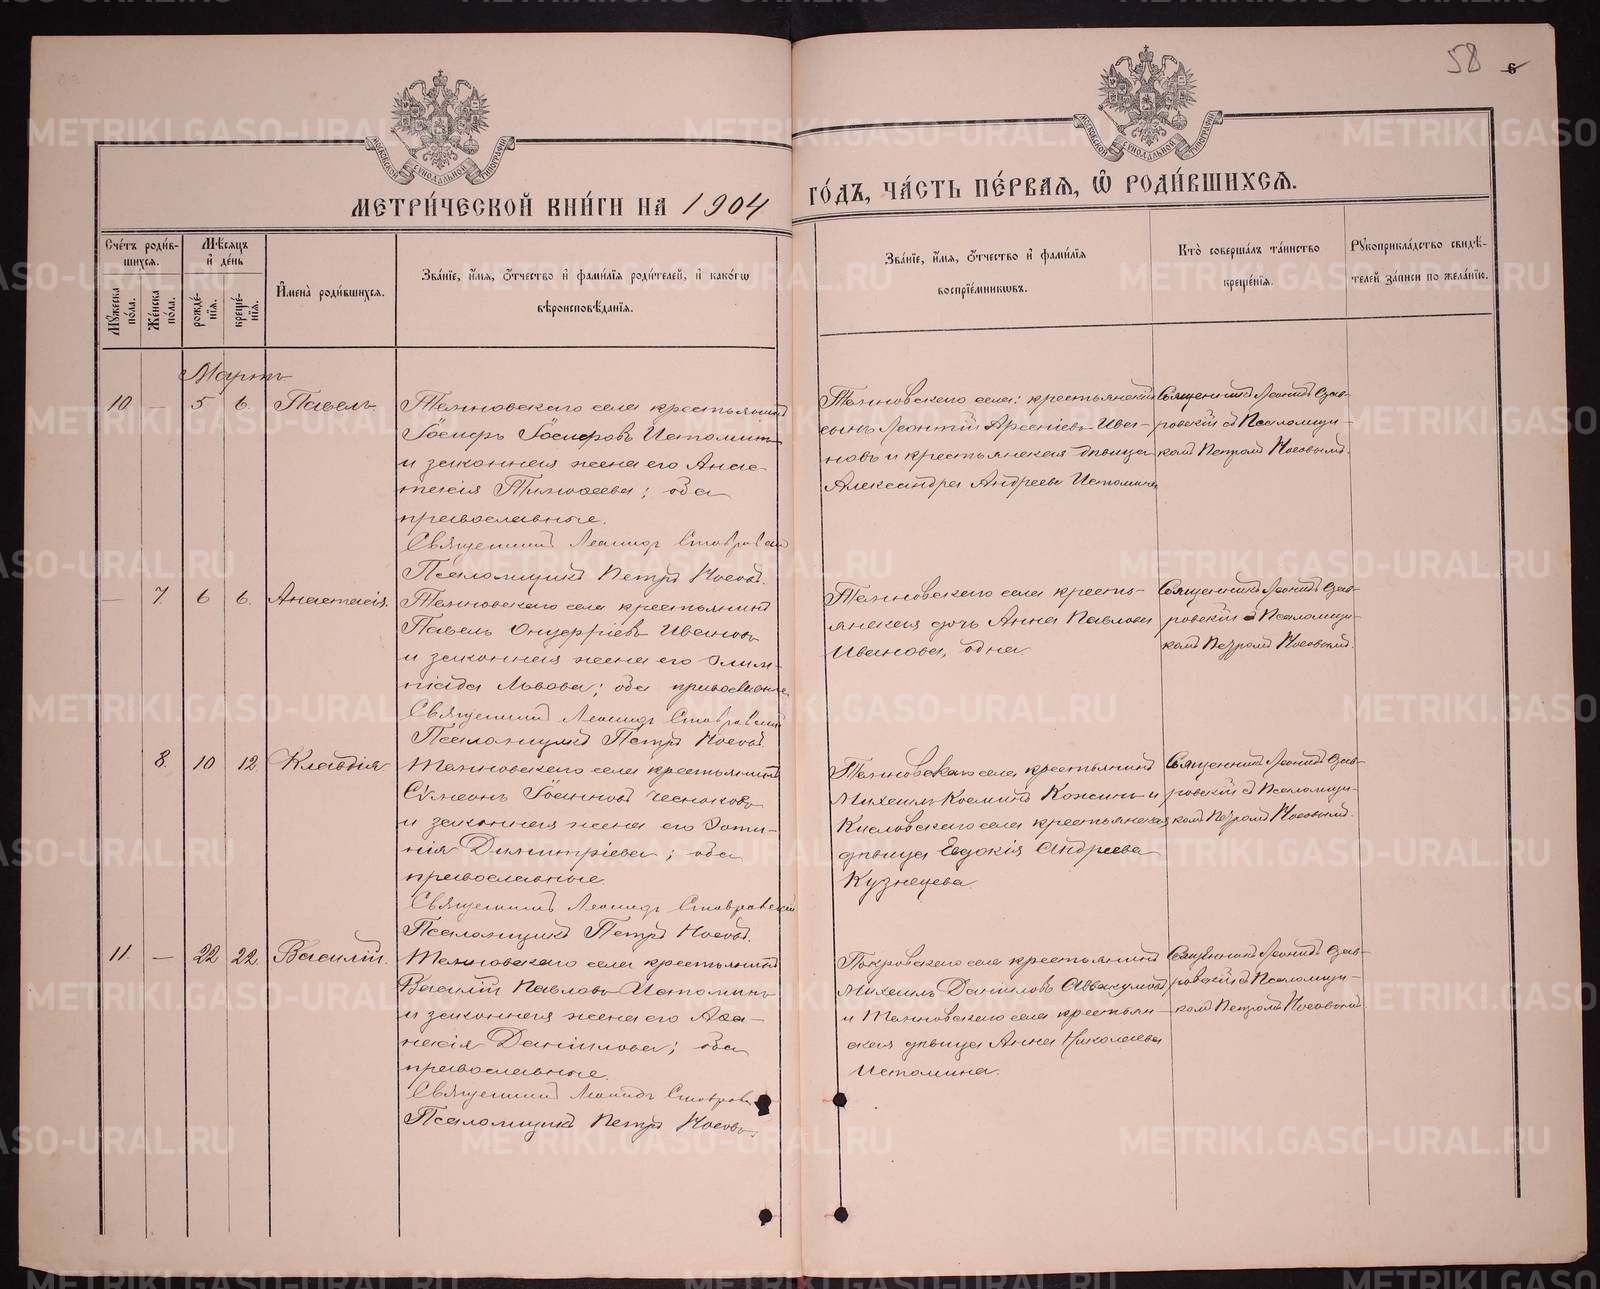 58
6
МОСКОВСКОЙ СѴНОДАЛЬНОЙ ТИПОГРАФІИ
МОСКОВСКОЙ СѴНОДАЛЬНОЙ ТИПОГРАФІИ
МЕТРИ́ЧЕСКОЙ КНИ́ГИ НА 1904 ГО́ДЪ, ЧА́СТЬ ПЕ́РВАѦ, Ѡ҆ РОДИ́ВШИХСѦ.
Счéтъ роди́в-
шихсѧ.
Мѹ́жеска по́ла.
Же́нска по́ла.
Мѣ́сѧцъ и҆ де́нь
рожде́-
нїѧ.
креще́-
нїѧ.
И҆мена̀ роди́вшихсѧ.
Зва́нїе, и҆́мѧ, ѻ҆́тчество и҆ фами́лїѧ роди́телей, и҆ како́гѡ
вѣроисповѣ́данїѧ.
Зва́нїе, и҆́мѧ, ѻ҆́тчество и҆ фами́лїѧ
воспрїе́мникѡвъ.
Кто̀ соверша́лъ та́инство
креще́нїѧ.
Рѹкоприкла́дство свидѣ́-
телей за́писи по жела́нїю.
Мартъ
10 — 5 6. Павелъ
Темновскаго села крестьянинъ
Іосифъ Іосифовъ Истоминъ
и законная жена его Анас-
тасія Тимоѳеева; оба
православные.
Священникъ Леонидъ Ставровскій
Псаломщикъ Петръ Носовъ.
Темновскаго села: крестьянскій
сынъ Леонтій Арсеніевъ Ива-
новъ и крестьянская дѣвица
Александра Андреева Истомина
Священникъ Леонидъ Став-
ровскій съ Псаломщи-
комъ Петромъ Носовымъ.
— 7. 6 6. Анастасія.
Темновскаго села крестьянинъ
Павелъ Онуфріевъ Ивановъ
и законная жена его Олим-
піада Львова; оба православные
Священникъ Леонидъ Ставровскій
Псаломщикъ Петръ Носовъ.
Темновскаго села кресть-
янская дочь Анна Павлова
Иванова, одна.
Священникъ Леонидъ Став-
ровскій съ Псаломщи-
комъ Петромъ Носовымъ.
8. 10 12 Клавдія.
Темновскаго села крестьянинъ
Сѵмеонъ Іоанновъ Чесноковъ
и законная жена его Фоти-
нія Димитріева; оба
православные.
Священникъ Леонидъ Ставровскій
Псаломщикъ Петръ Носовъ.
Темновскаго села крестьянинъ
Михаилъ Косминъ Кожинъ и
Кисловскаго села крестьянская
дѣвица Евдокія Андреева
Кузнецова.
Священникъ Леонидъ Став-
ровскій съ Псаломщи-
комъ Петромъ Носовымъ.
11. — 22 22. Василій.
Темновскаго села крестьянинъ
Василій Павловъ Истоминъ
и законная жена его Аѳа-
насія Даніилова; оба
православные.
Священникъ Леонидъ Ставровскій
Псаломщикъ Петръ Носовъ.
Покровскаго села крестьянинъ
Михаилъ Даніиловъ Аввакумовъ
и Темновскаго села крестьян-
ская дѣвица Анна Николаева
Истомина.
Священникъ Леонидъ Став-
ровскій съ Псаломщи-
комъ Петромъ Носовымъ.
METRIKI.GASO-URAL.RU